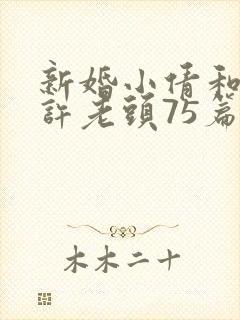 新婚小倩和
許老頭75篇
木木二十